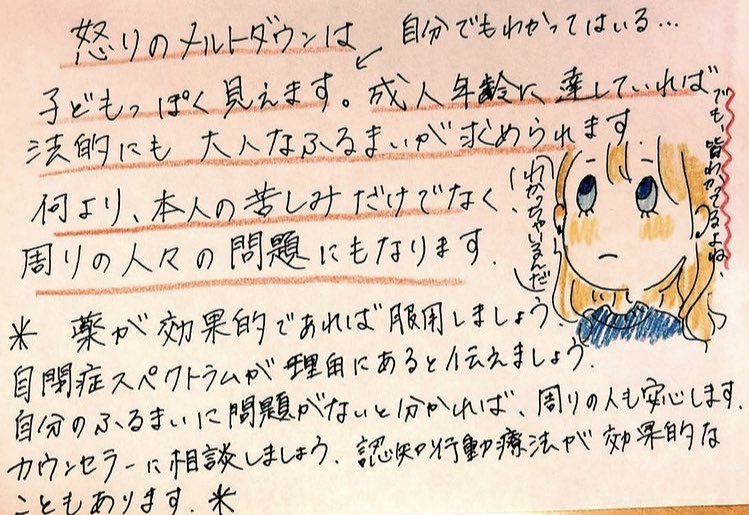 怒りのメルトダウンは
自分でもわかってはいる…
子どもっぽく見えます。成人年齢に達していれば
法的にも大人なふるまいが求められます
何より、本人の苦しみだけでなく
周りの人々の問題にもなります.
でも、皆わかってるよね、
わかっちゃいるんだ
* 薬が効果的であれば服用しましょう.
自閉症スペクトラムが理由にあると伝えましょう.
自分のふるまいに問題がないと分かれば、周りの人も安心します.
カウンセラーに相談しましょう. 認知行動療法が効果的な
こともあります. *